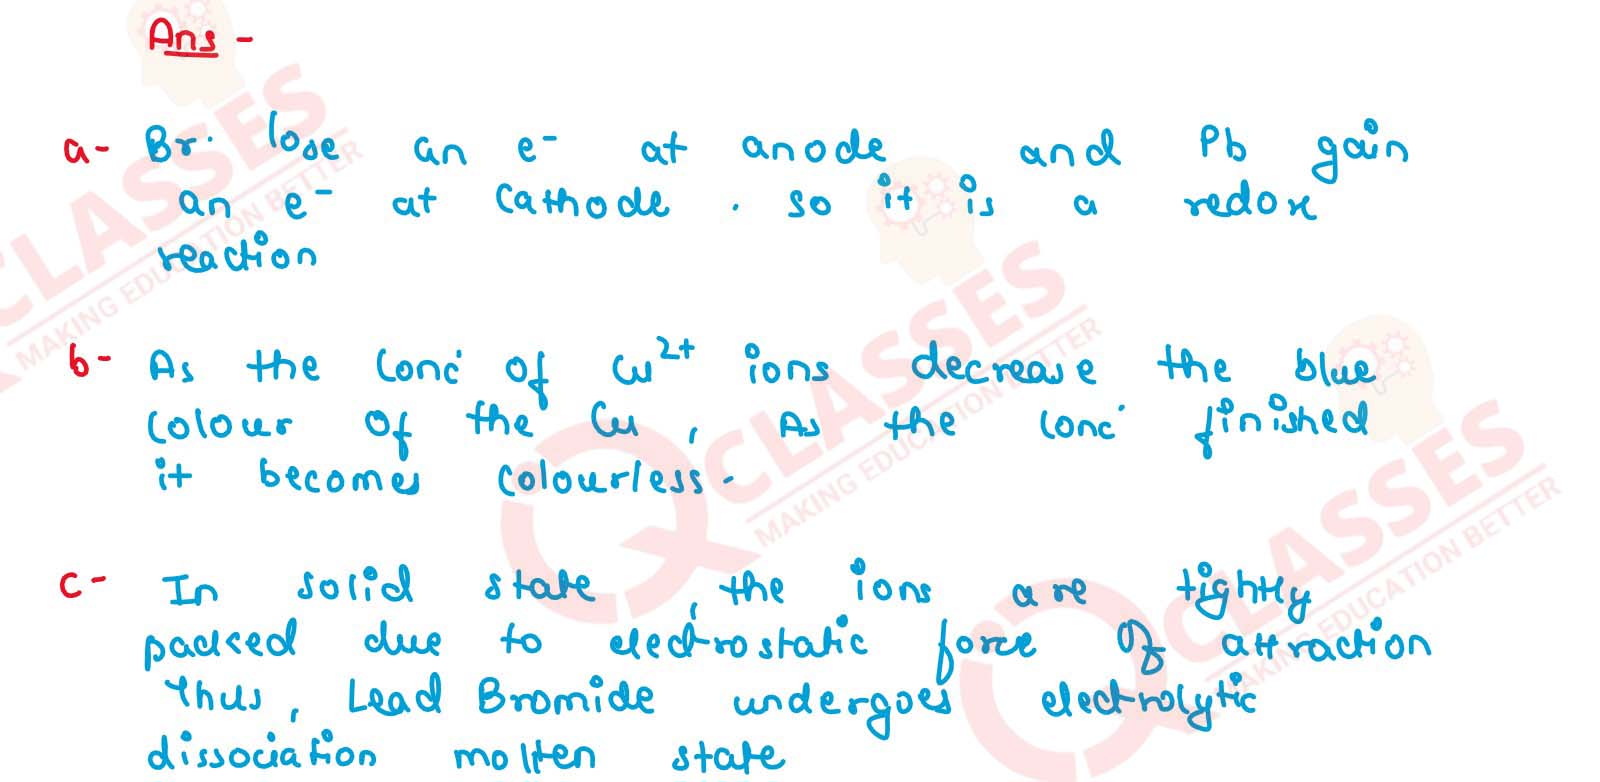 Ans -
a- Br· lose an e⁻ at anode and Pb gain
an e⁻ at cathode . so it is a redox
reaction
b- As the conc' of Cu²⁺ ions decrease the blue
colour of the Cu , As the conc' finished
it becomes colourless.
c- In solid state , the ions are tightly
packed due to electrostatic force of attraction
Thus , Lead Bromide undergoes electrolytic
dissociation molten state
CLASSES
MAKING EDUCATION BETTER
CLASSES
MAKING EDUCATION BETTER
CLASSES
MAKING EDUCATION BETTER